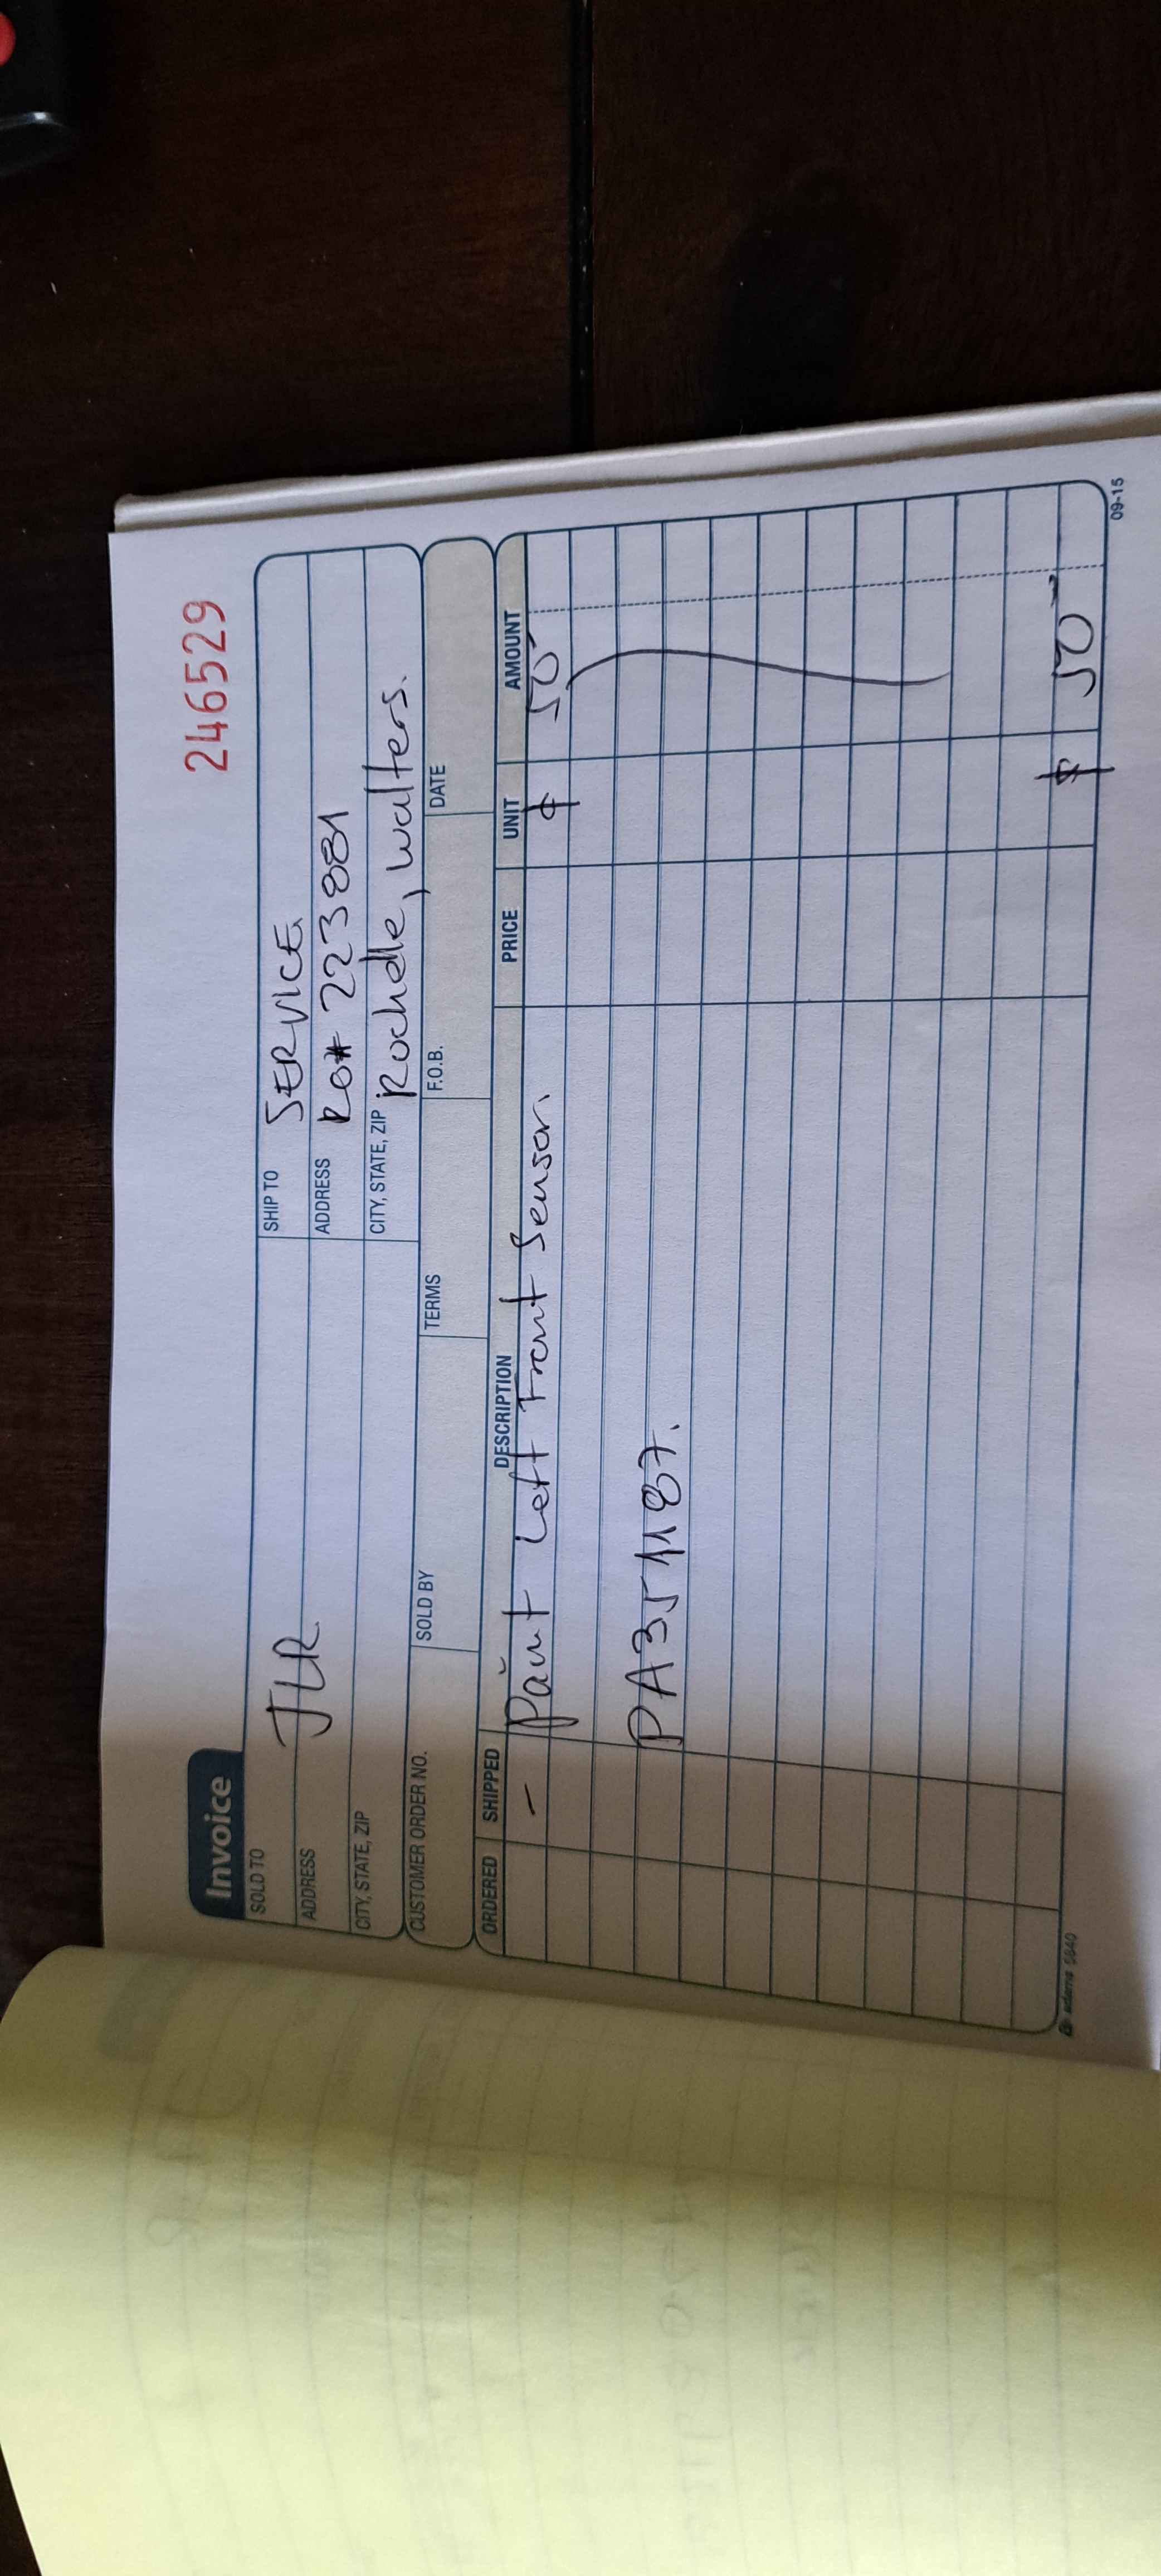 246529
Invoice
SOLD TO JLR.
SHIP TO SERVICE.
ADDRESS
ADDRESS Ro# 223881
CITY, STATE, ZIP
CITY, STATE, ZIP Rochelle, walters.
CUSTOMER ORDER NO. SOLD BY TERMS F.O.B. DATE
ORDERED SHIPPED DESCRIPTION PRICE UNIT AMOUNT
- Paint Left Front Sensor. $ 50
PA351187.
$ 50
adams 5840 09-15